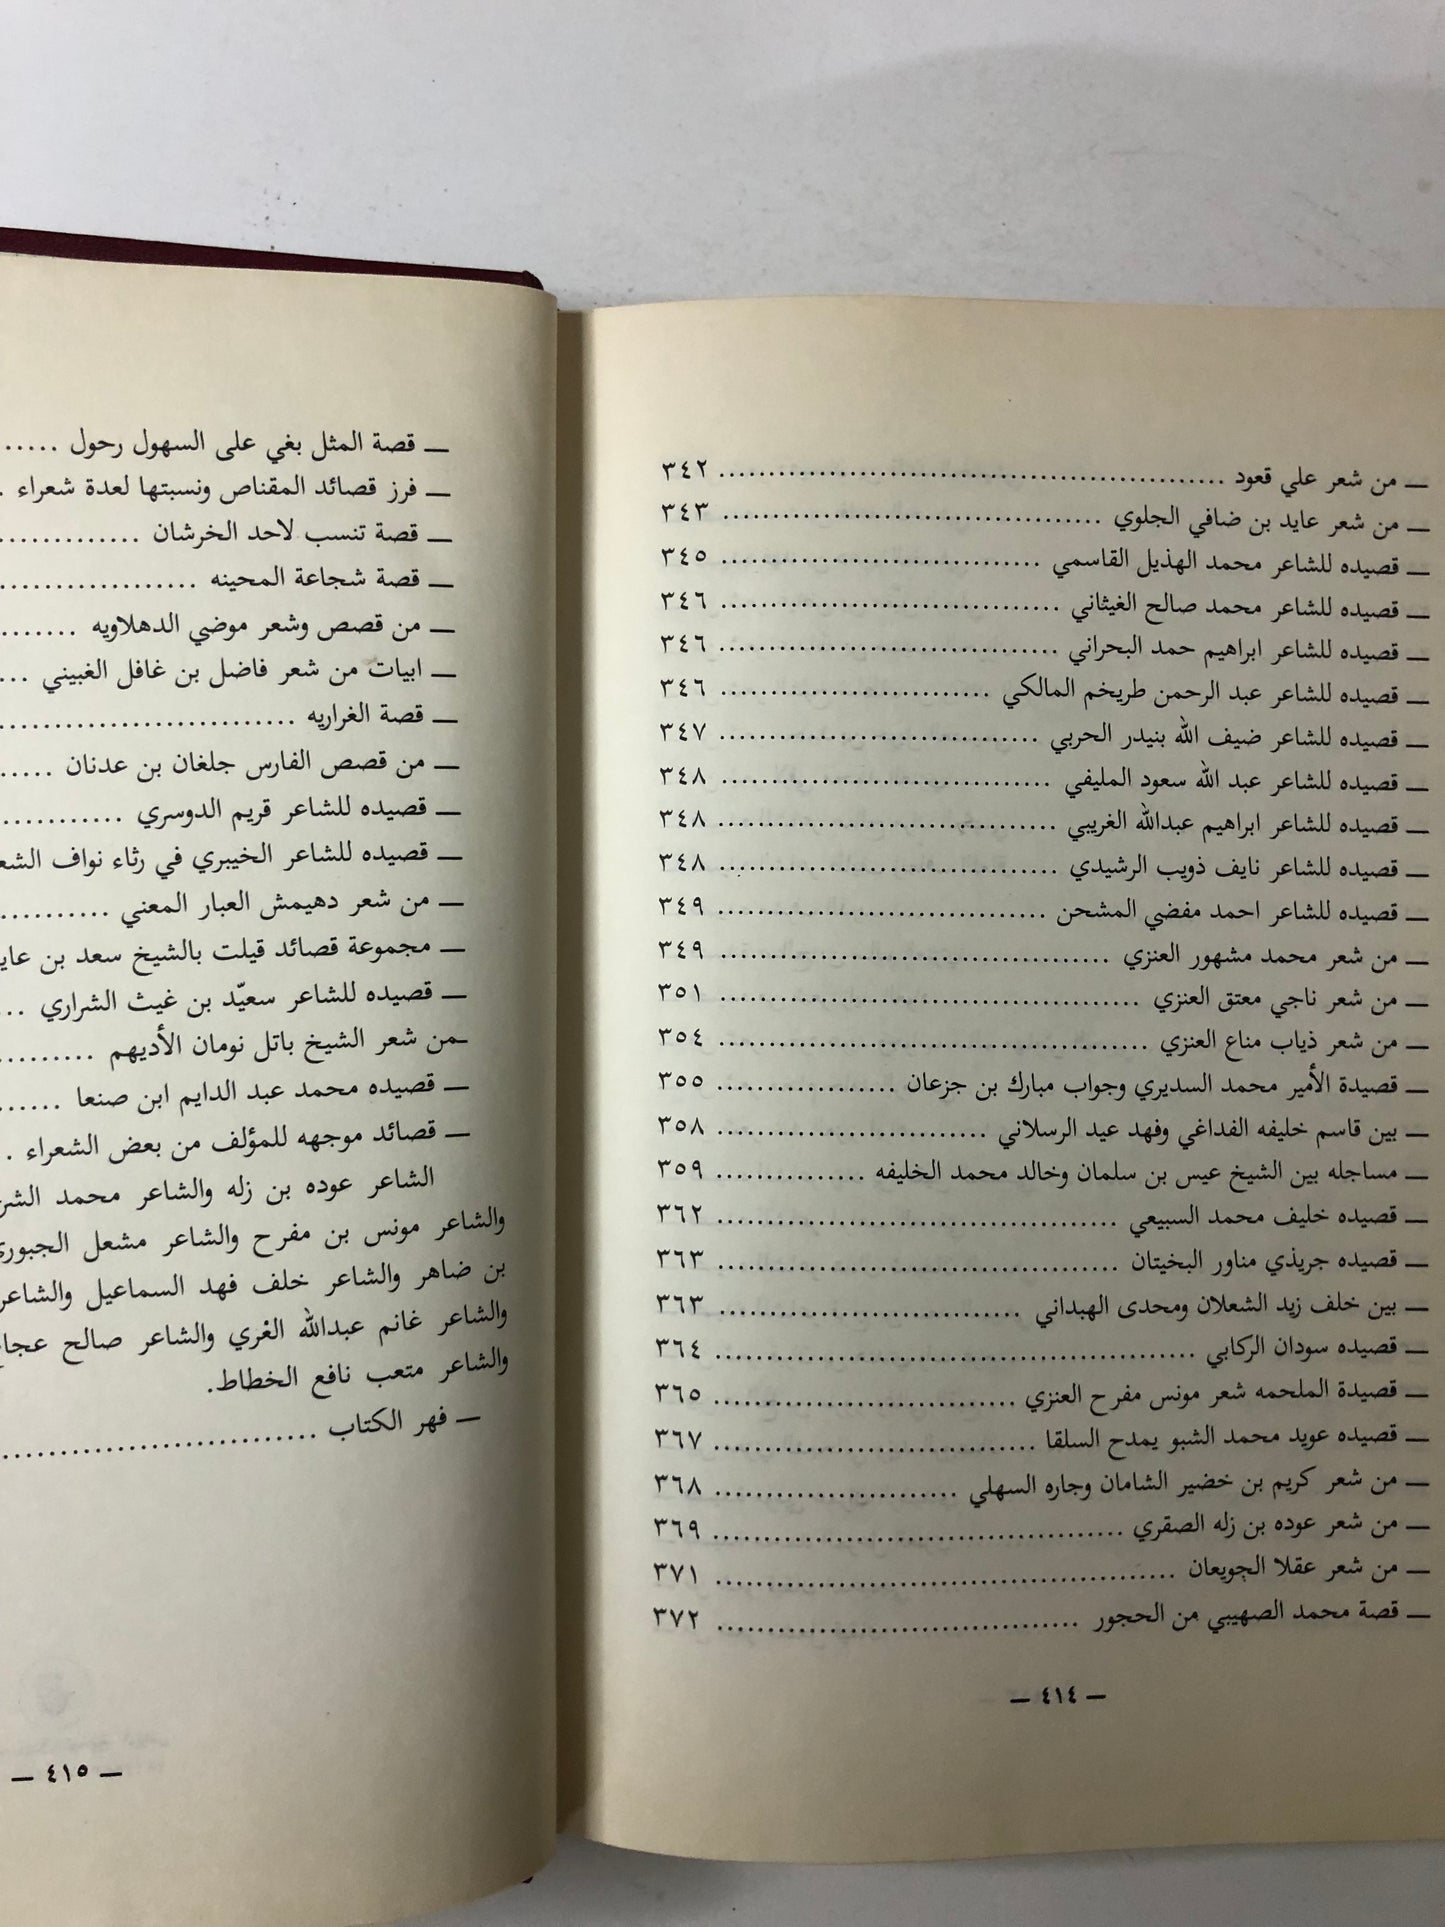 — من شعر علي قعود ................ ٣٤٢
— من شعر عايد بن ضافي الجلوي ................ ٣٤٣
— قصيده للشاعر محمد الهذيل القاسمي ................ ٣٤٥
— قصيده للشاعر محمد صالح الغيثاني ................ ٣٤٦
— قصيده للشاعر ابراهيم حمد البحراني ................ ٣٤٦
— قصيده للشاعر عبد الرحمن طريخم المالكي ................ ٣٤٦
— قصيده للشاعر ضيف الله بنيدر الحربي ................ ٣٤٧
— قصيده للشاعر عبد الله سعود المليفي ................ ٣٤٨
— قصيده للشاعر ابراهيم عبدالله الغريبي ................ ٣٤٨
— قصيده للشاعر نايف ذويب الرشيدي ................ ٣٤٨
— قصيده للشاعر احمد مفضي المشحن ................ ٣٤٩
— من شعر محمد مشهور العنزي ................ ٣٤٩
— من شعر ناجي معتق العنزي ................ ٣٥١
— من شعر ذياب مناع العنزي ................ ٣٥٤
— قصيدة الأمير محمد السديري وجواب مبارك بن جزعان ................ ٣٥٥
— بين قاسم خليفه الفداغي وفهد عيد الرسلاني ................ ٣٥٨
— مساجله بين الشيخ عيس بن سلمان وخالد محمد الخليفه ................ ٣٥٩
— قصيده خليف محمد السبيعي ................ ٣٦٢
— قصيده جريذي مناور البخيتان ................ ٣٦٣
— بين خلف زيد الشعلان ومحدى الهبداني ................ ٣٦٣
— قصيده سودان الركابي ................ ٣٦٤
— قصيدة الملحمه شعر مونس مفرح العنزي ................ ٣٦٥
— قصيده عويد محمد الشبو يمدح السلقا ................ ٣٦٧
— من شعر كريم بن خضير الشامان وجاره السهلي ................ ٣٦٨
— من شعر عوده بن زله الصقري ................ ٣٦٩
— من شعر عقلا الجويعان ................ ٣٧١
— قصة محمد الصهيبي من الحجور ................ ٣٧٢
— ٤١٤ —
— قصة المثل بغي على السهول رحول .....
— فرز قصائد المقناص ونسبتها لعدة شعراء .
— قصة تنسب لاحد الخرشان .............
— قصة شجاعة المحينه .................
— من قصص وشعر موضي الدهلاويه ........
— ابيات من شعر فاضل بن غافل الغبيني ...
— قصة الغراريه .........................
— من قصص الفارس جلغان بن عدنان .....
— قصيده للشاعر قريم الدوسري ...........
— قصيده للشاعر الخيبري في رثاء نواف
— من شعر دهيمش العبار المعني ..........
— مجموعة قصائد قيلت بالشيخ سعد بن
— قصيده للشاعر سعيّد بن غيث الشراري ...
— من شعر الشيخ باتل نومان الأديهم .........
— قصيده محمد عبد الدايم ابن صنعا ......
— قصائد موجهه للمؤلف من بعض الشعراء .
الشاعر عوده بن زله والشاعر محمد
والشاعر مونس بن مفرح والشاعر مشعل
بن ضاهر والشاعر خلف فهد السماعيل والشاعر
والشاعر غانم عبدالله الغري والشاعر صالح
والشاعر متعب نافع الخطاط.
— فهر الكتاب ............................
— ٤١٥ —